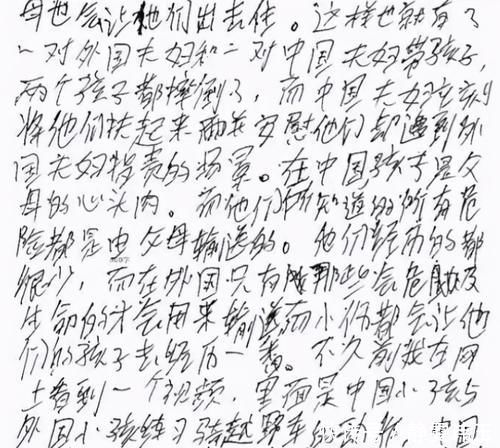 母也会让他们出去住。这样也就有了
一对外国夫妇和一对中国夫妇带孩子,
两个孩子都摔倒了,而中国夫妇立刻
将他们扶起来而并安慰他们却遇到外
国夫妇指责的场景。在中国孩子是父
母的心头肉。而他们所知道的所有危
险都是由父母输送的。他们经历的都
很少,而在外国只有那些会危及
生命的才会用来输送而小伤都会让他
们的孩子去经历一番。不久前我在网
上看到一个视频,里面是中国小孩与
外国小孩练习骑越野车